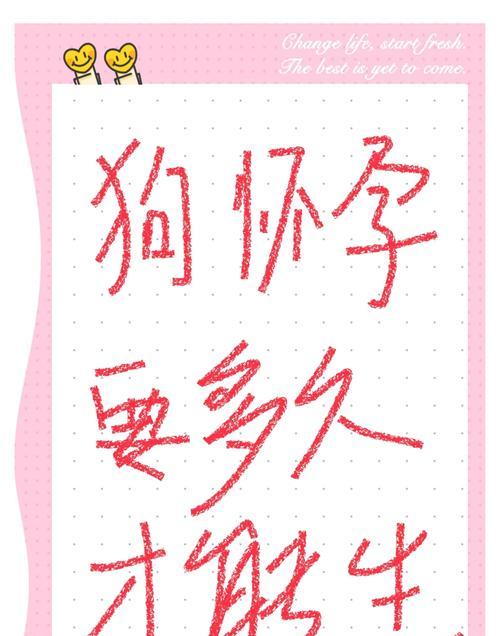 Change life, start fresh.
The best is yet to come.
狗怀孕
要多久
才能生